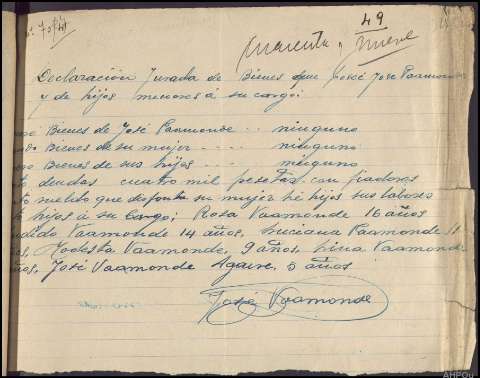 49
Cuarenta y nueve
Declaración Jurada de Bienes que José Vaamonde
y de hijos menores á su cargo:
Bienes de José Vaamonde .. ninguno
Bienes de su mujer .... ninguno
Bienes de sus hijos .... ninguno
deudas cuatro mil pesetas con fiadores
sueldo que disfruta su mujer hé hijos sus labores
hijos á su cargo; Rosa Vaamonde 16 años
Vaamonde 14 años, Luciana Vaamonde 11
Modesta Vaamonde, 9 años, Lina Vaamonde
años, José Vaamonde 5 años
José Vaamonde
AHPOu